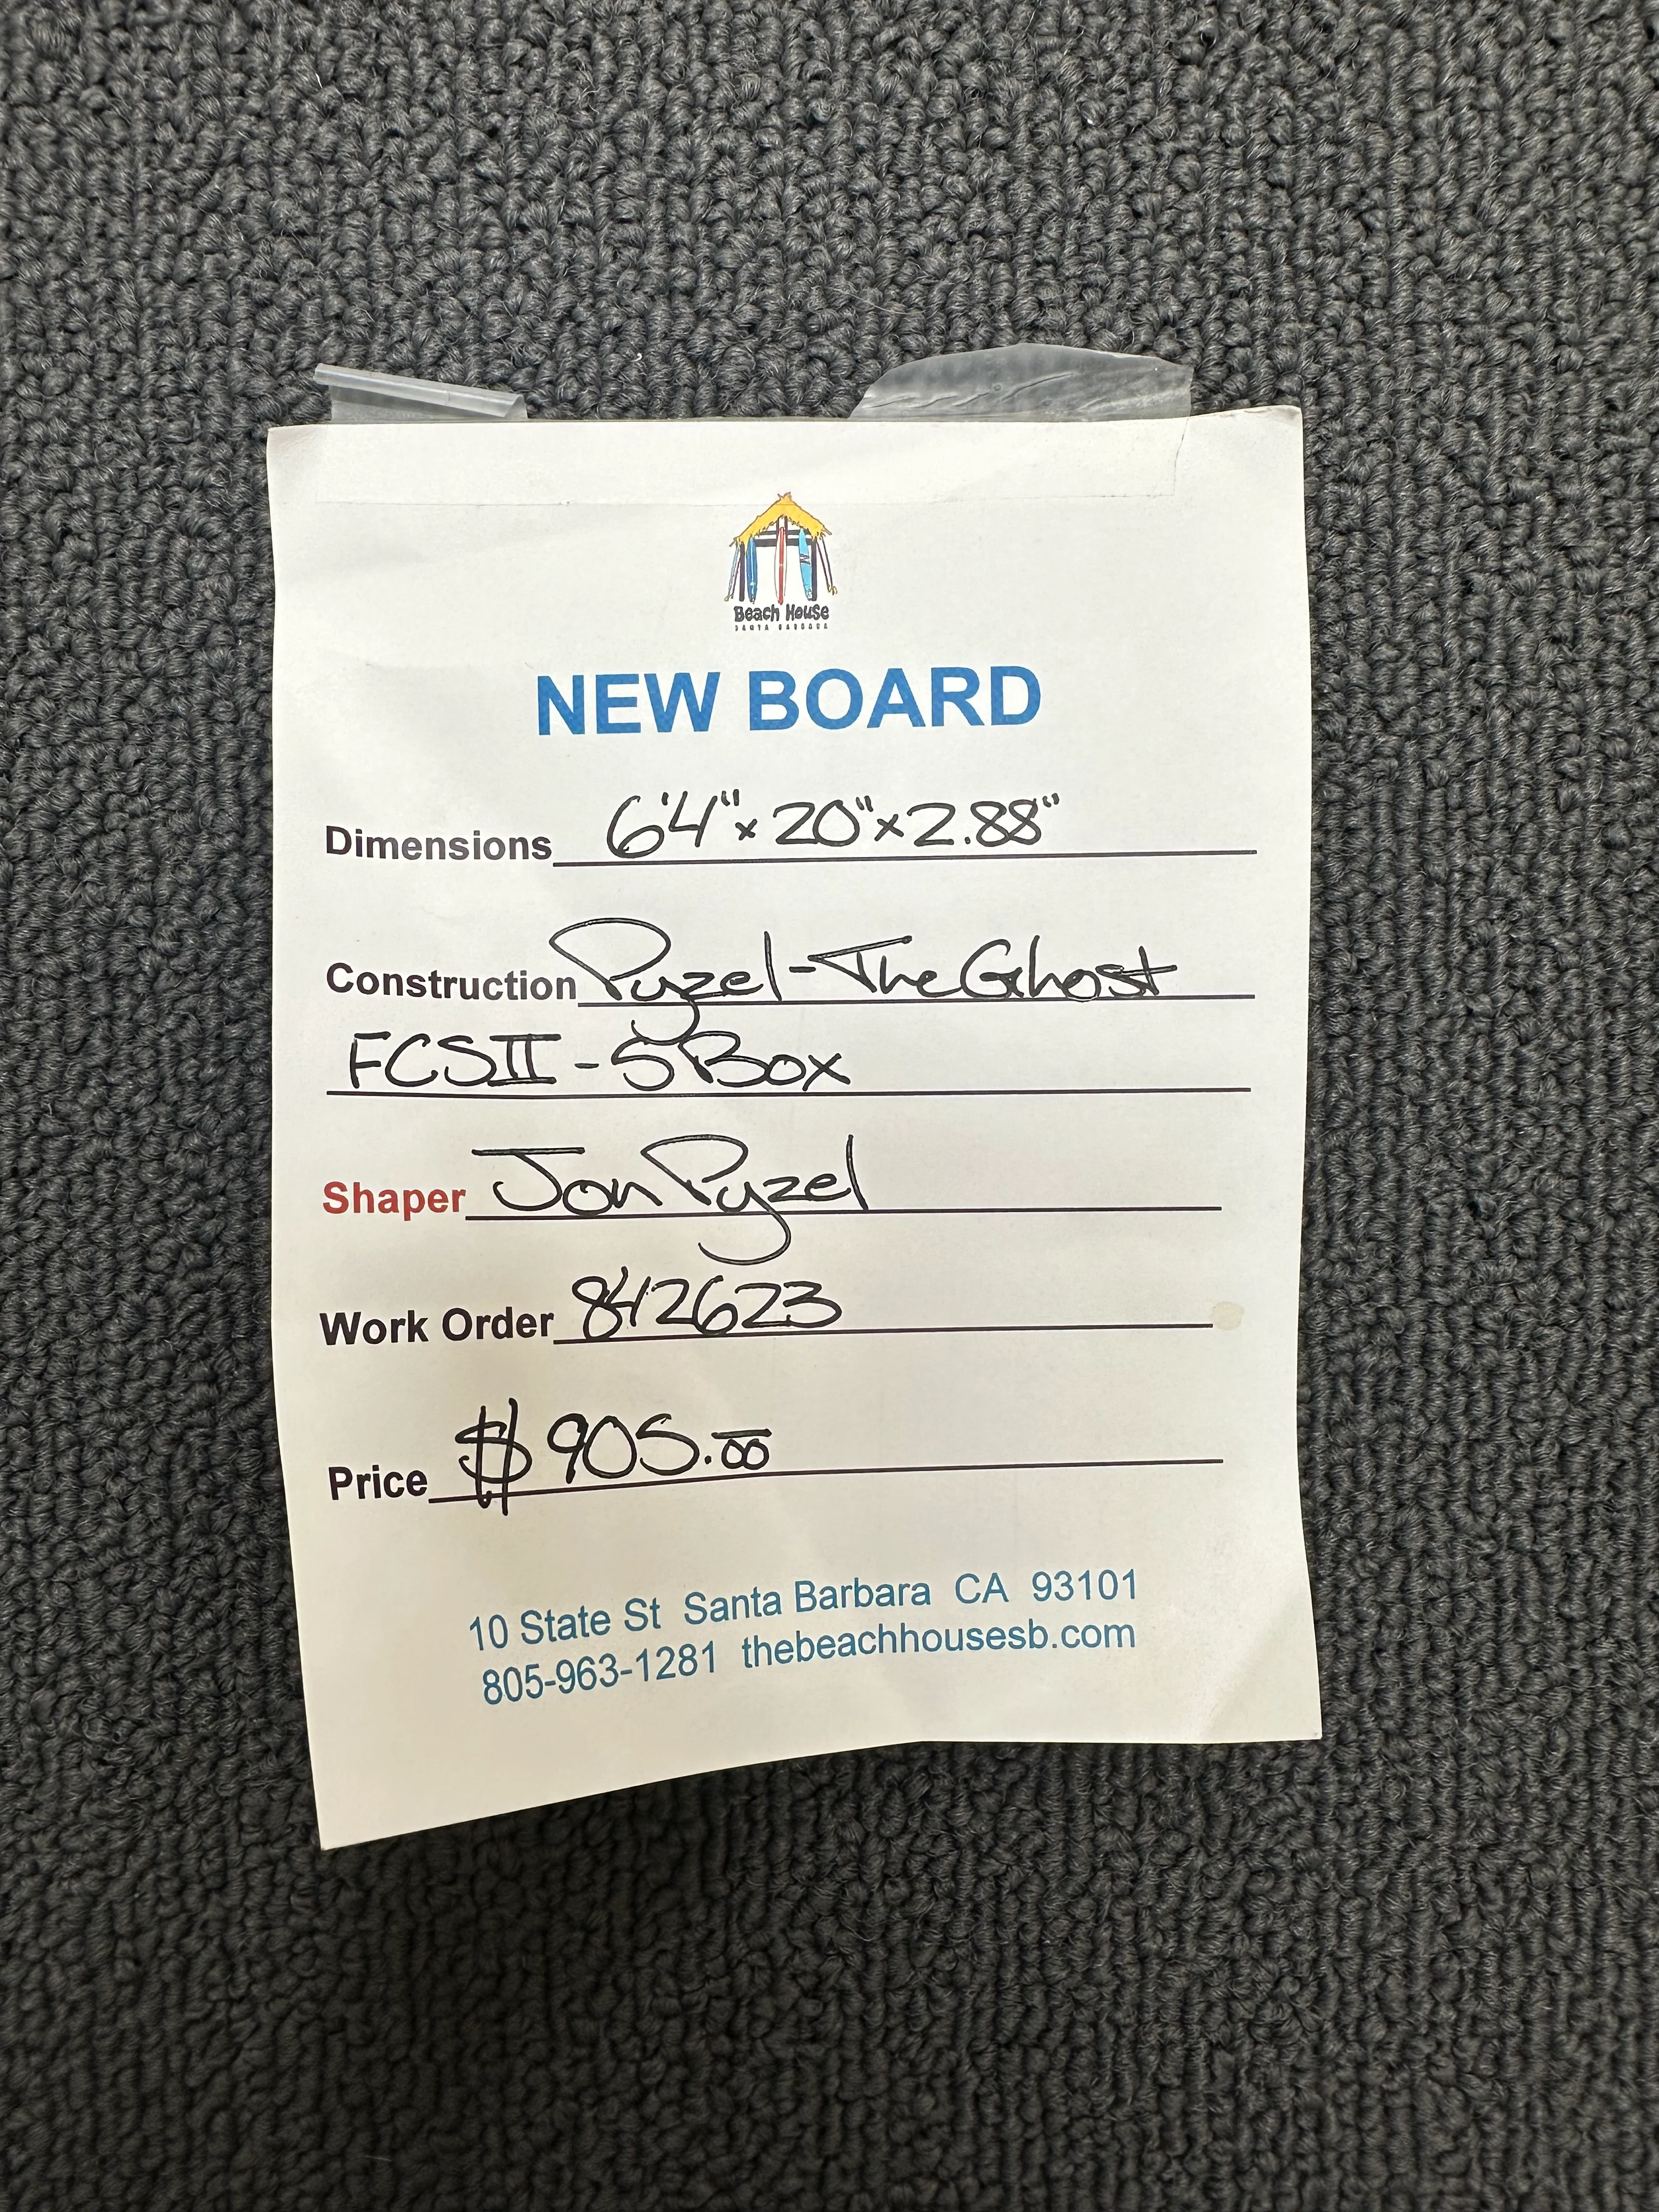 Beach House
SANTA BARBARA
NEW BOARD
Dimensions 6'4" x 20" x 2.88"
Construction Pyzel - The Ghost
FCSII - 5 Box
Shaper Jon Pyzel
Work Order 842623
Price $905.00
10 State St Santa Barbara CA 93101
805-963-1281 thebeachhousesb.com